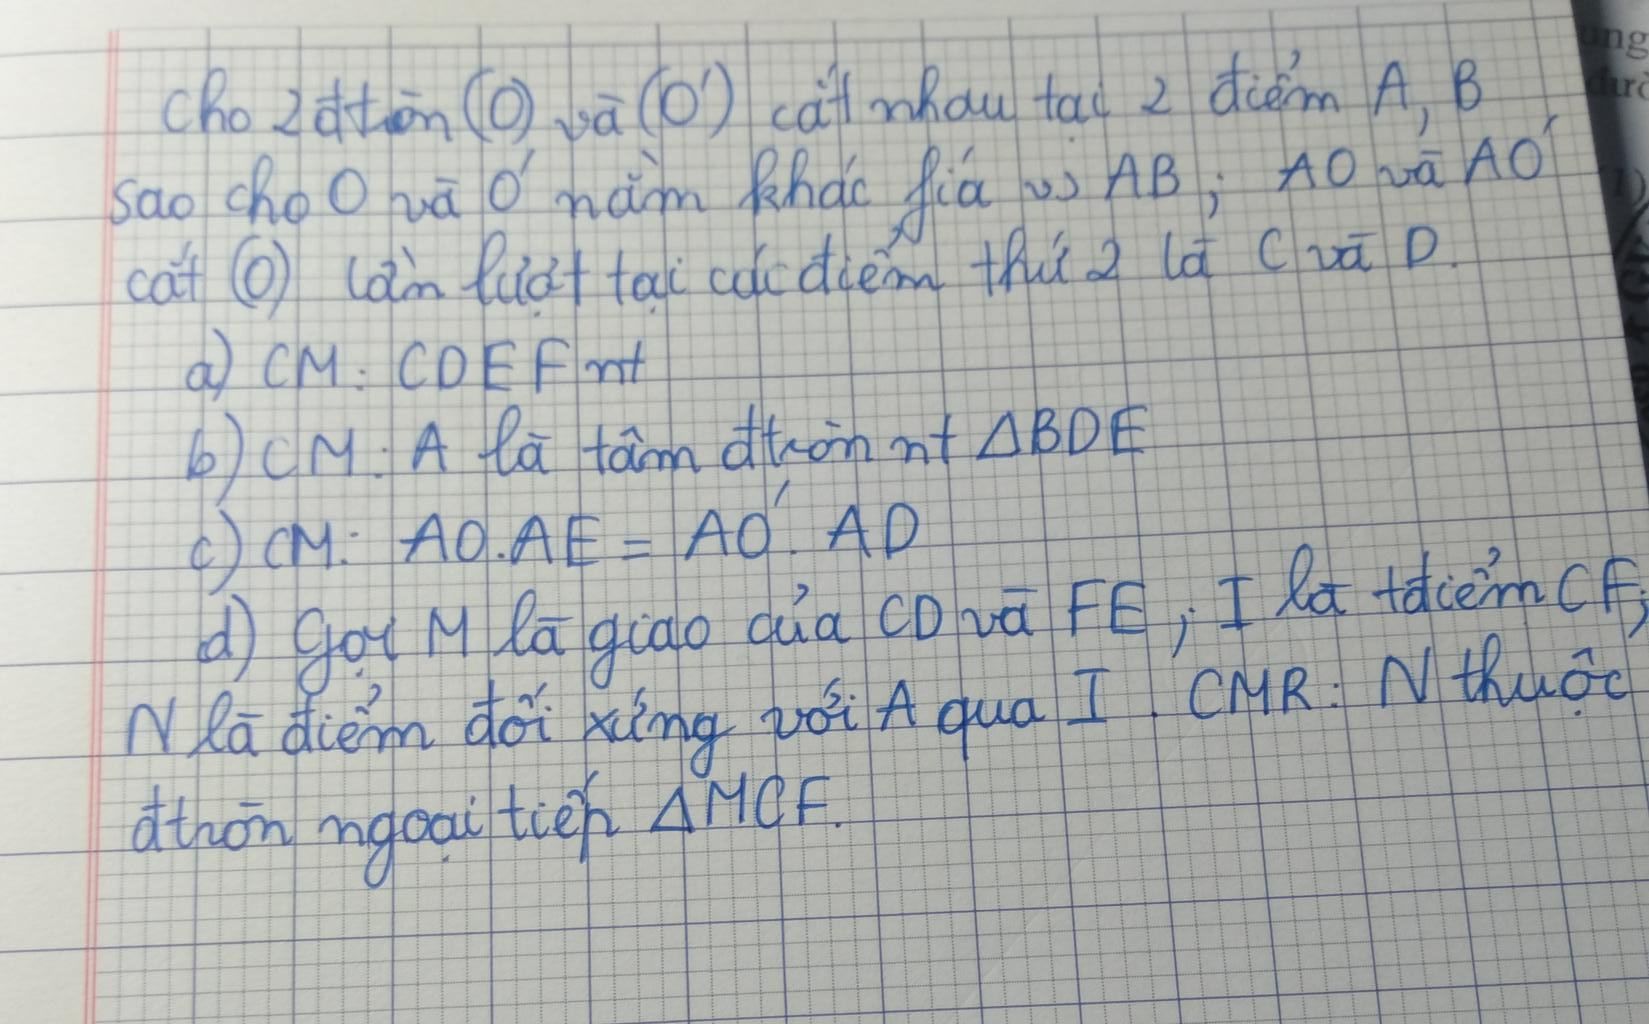 Cho 2 đtròn (O) và (O') cắt nhau tại 2 điểm A, B
sao cho O và O' nằm khác fía vs AB; AO và AO'
cắt (O) lần lượt tại các điểm thứ 2 là C và D.
a) CM: CDEF nt
b) CM: A là tâm đtròn nt ΔBDE
c) CM: AO.AE = AO'.AD
d) Gọi M là giao của CD và FE; I là tđiểm CF;
N là điểm đối xứng với A qua I. CMR: N thuộc
đtròn ngoại tiếp ΔMCF.
ung